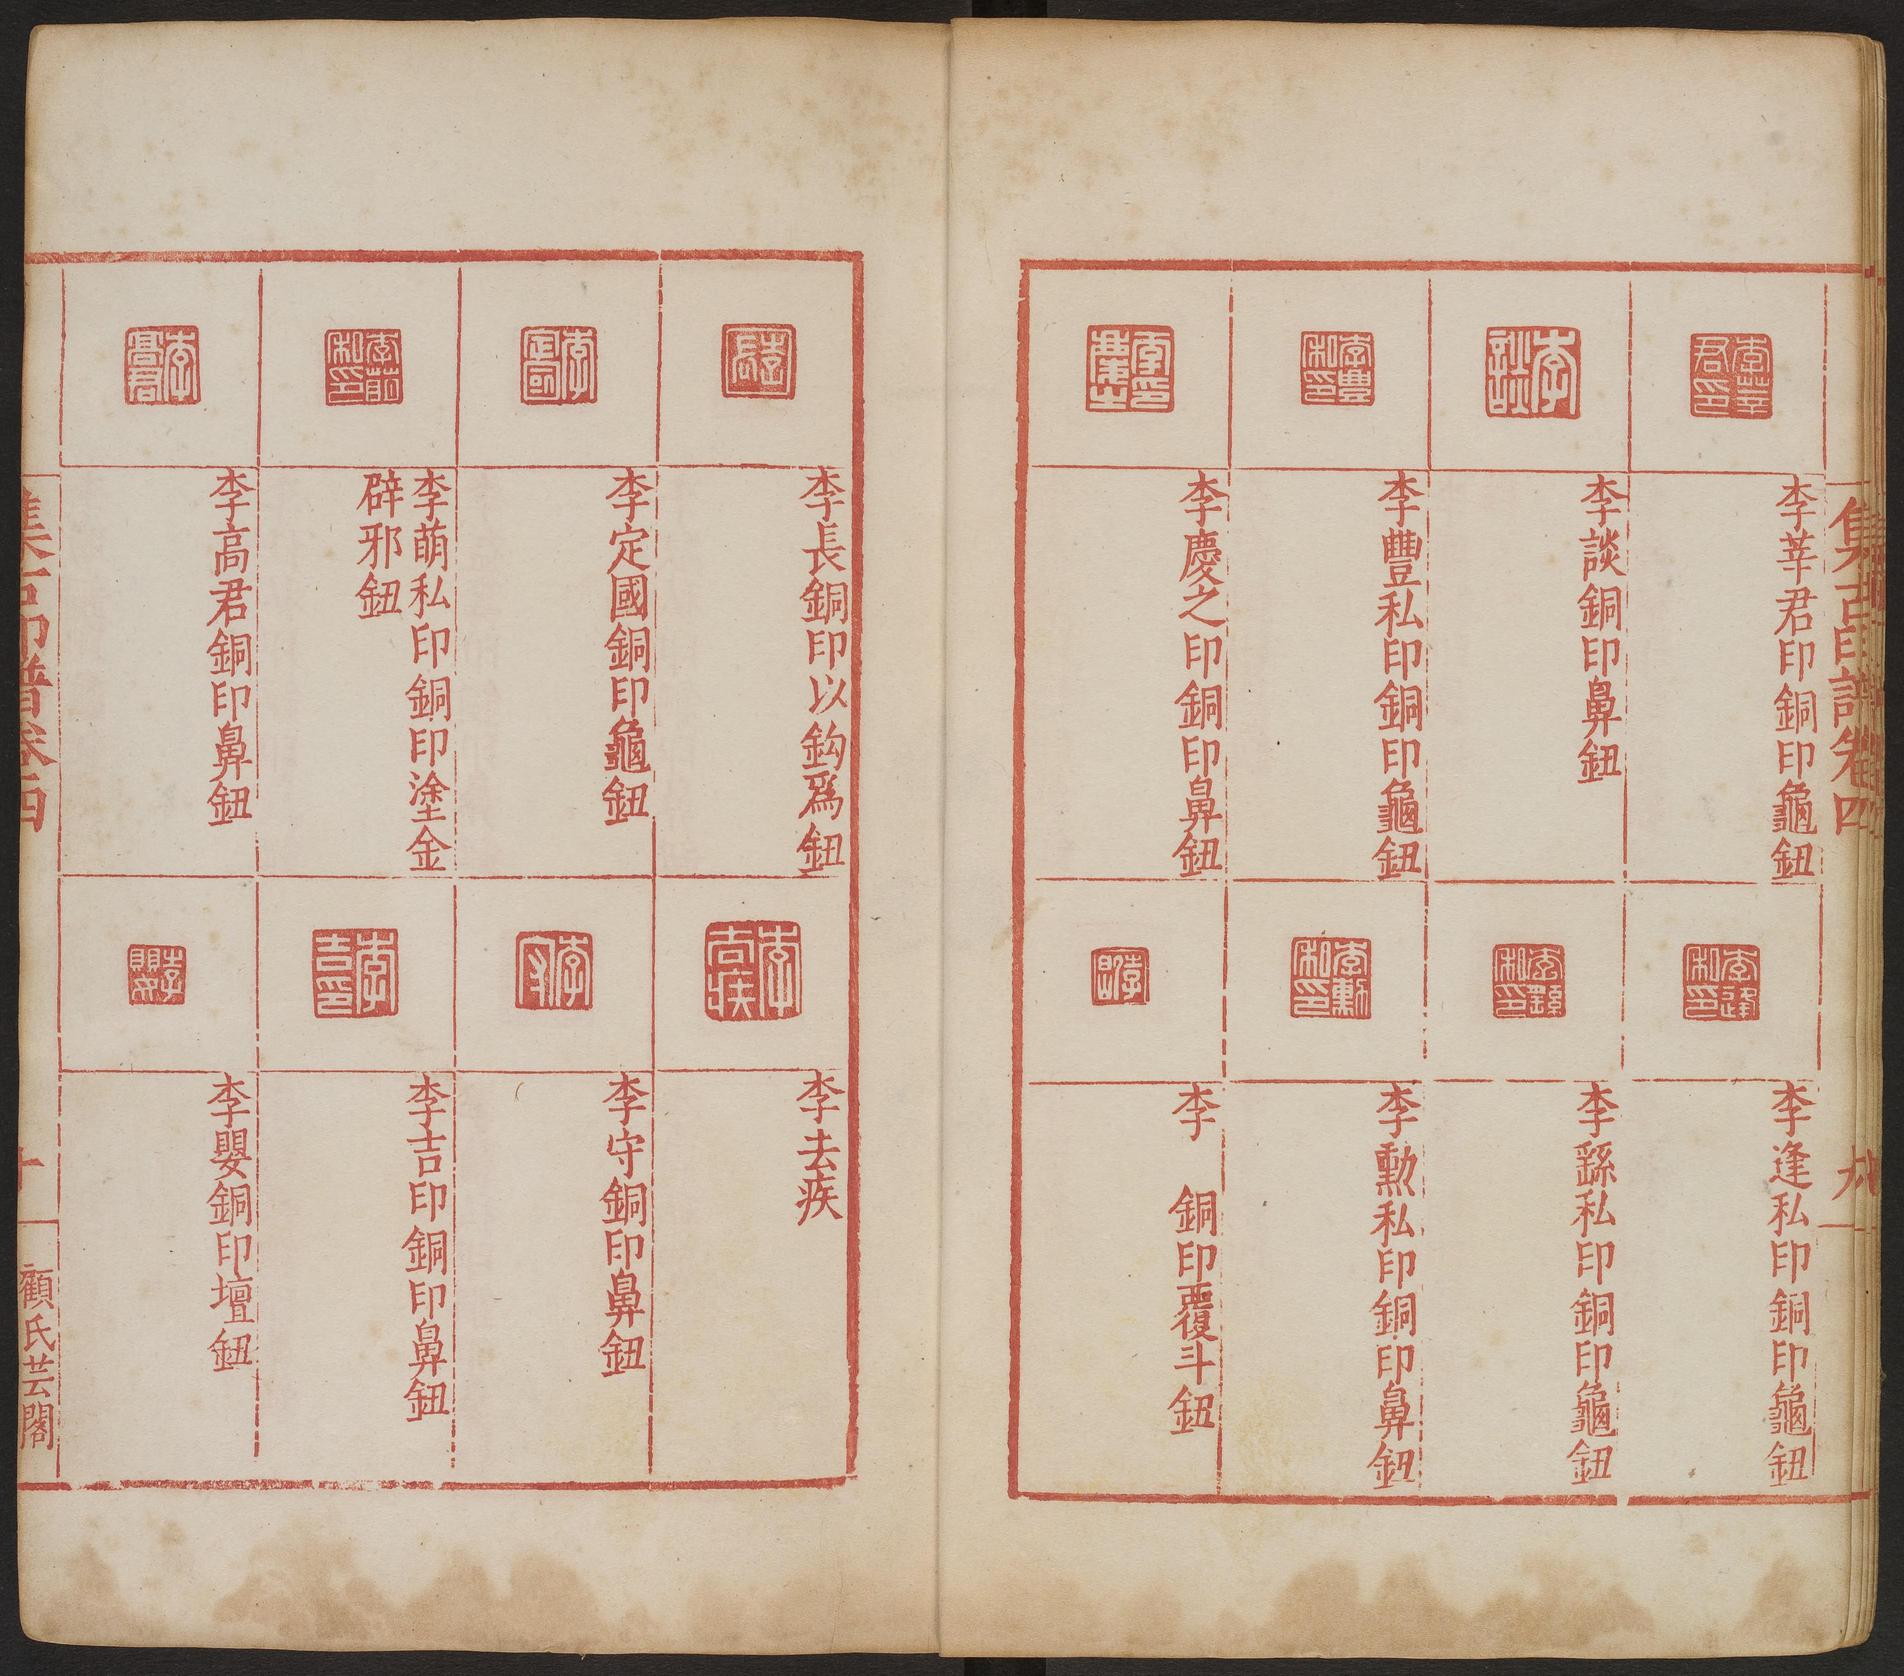 集古印譜卷四
九
李莘君印銅印龜鈕
李談銅印鼻鈕
李豐私印銅印龜鈕
李慶之印銅印鼻鈕
李逢私印銅印龜鈕
李繇私印銅印龜鈕
李勳私印銅印鼻鈕
李 銅印覆斗鈕
李長銅印以鈎爲鈕
李定國銅印龜鈕
李萌私印銅印塗金
辟邪鈕
李高君銅印鼻鈕
李去疾
李守銅印鼻鈕
李吉印銅印鼻鈕
李嬰銅印壇鈕
集古印譜卷四
十
顧氏芸閣